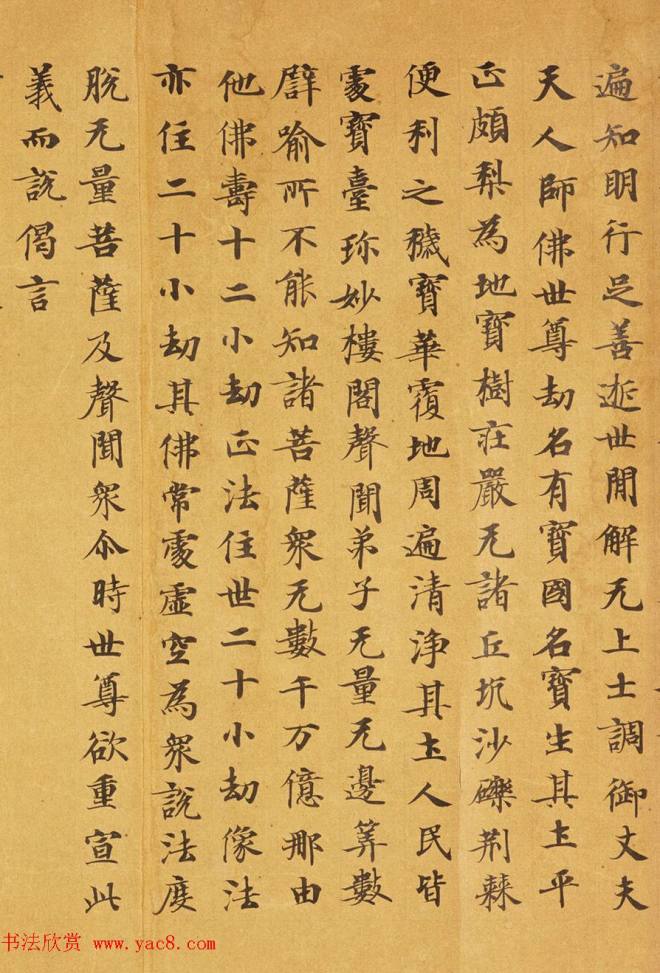 遍知明行足善逝世間解无上士調御丈夫
天人師佛世尊劫名有寶國名寶生其土平
正頗梨為地寶樹莊嚴无諸丘坑沙礫荊棘
便利之穢寶華覆地周遍清淨其土人民皆
處寶臺珎妙樓閣聲聞弟子无量无邊筭數
譬喻所不能知諸菩薩眾无數千万億那由
他佛壽十二小劫正法住世二十小劫像法
亦住二十小劫其佛常處虛空為眾說法度
脫无量菩薩及聲聞眾尒時世尊欲重宣此
義而說偈言
书法欣赏 www.yac8.com